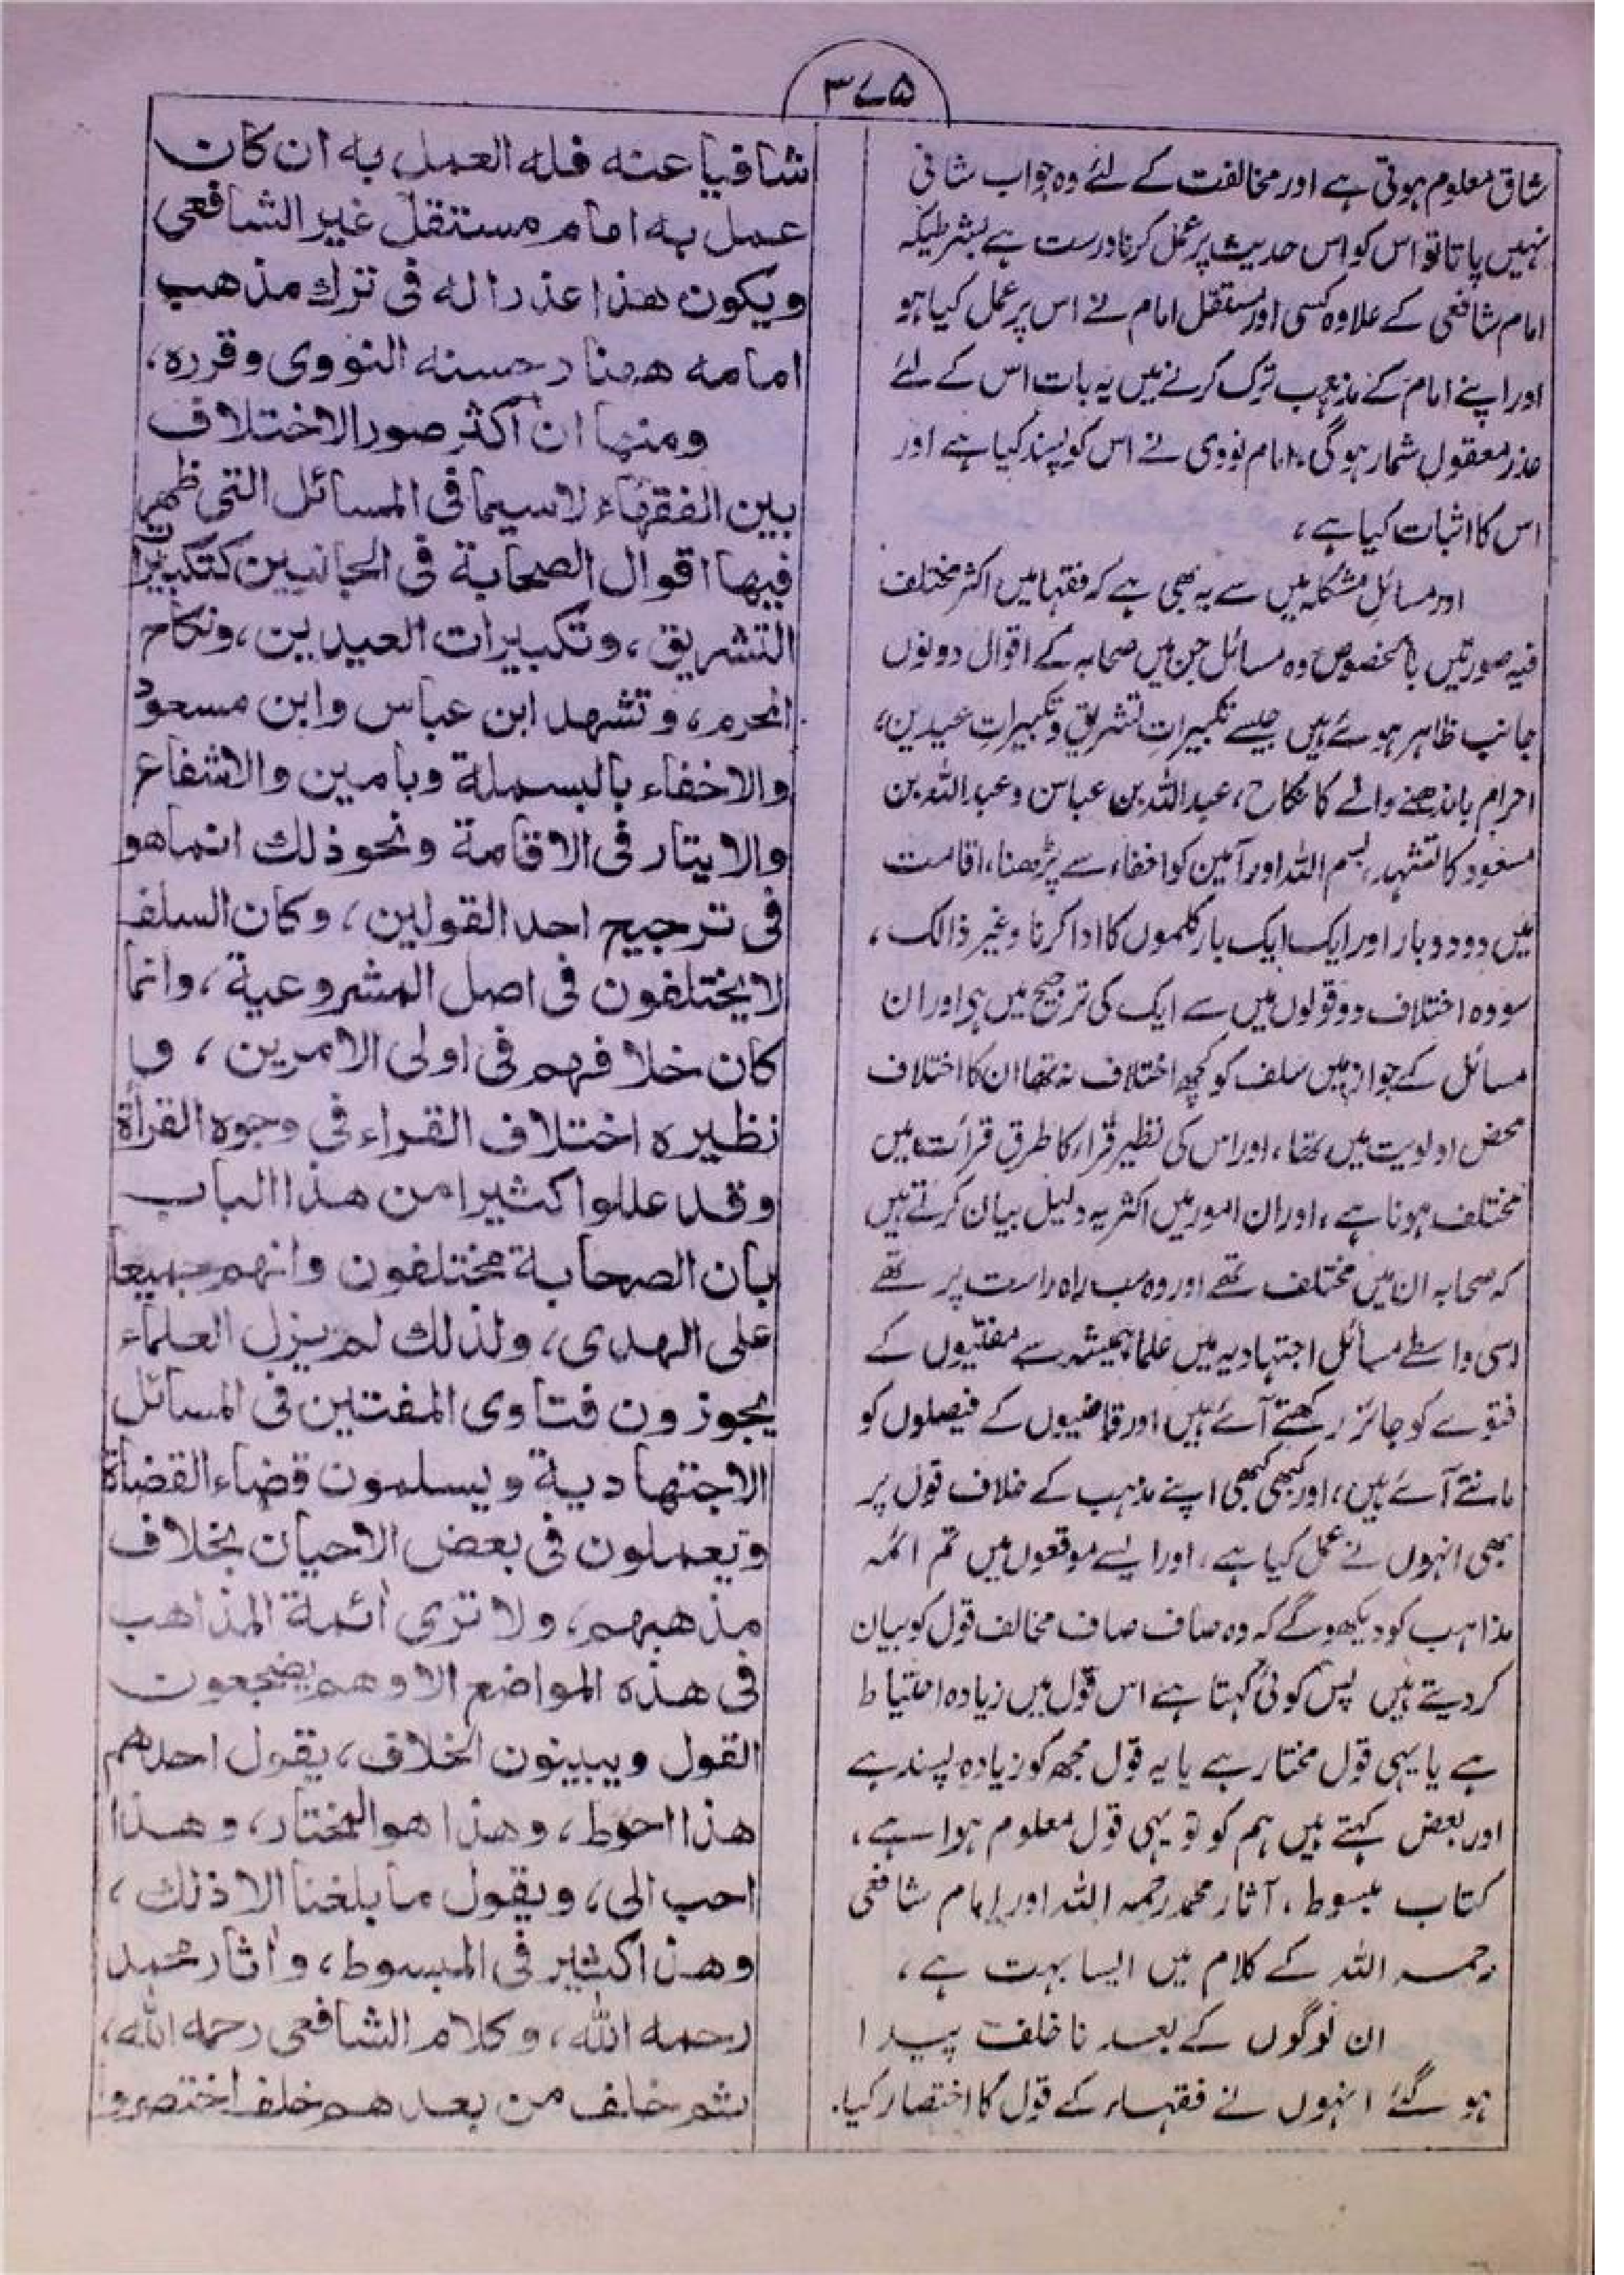 ۳۷۵
شاق معلوم ہوتی ہے اور مخالفت کے لئے وہ جواب شافی
نہیں پاتا تو اس کو اس حدیث پر عمل کرنا درست ہے بشرطیکہ
امام شافعی کے علاوہ کسی اور مستقل امام نے اس پر عمل کیا ہو
اور اپنے امام کے مذہب ترک کرنے میں یہ بات اس کے لئے
عذر معقول شمار ہوگی، امام نووی نے اس کو پسند کیا ہے اور
اس کا اثبات کیا ہے،
اور مسائل مشکلہ میں سے یہ بھی ہے کہ فقہا میں اکثر مختلف
فیہ صورتیں بالخصوص وہ مسائل جن میں صحابہ کے اقوال دونوں
جانب ظاہر ہوئے ہیں جیسے تکبیراتِ تشریق و تکبیراتِ عیدین،
احرام باندھنے والے کا نکاح، عبداللہ بن عباس و عبداللہ بن
مسعود کا تشہد، بسم اللہ اور آمین کو اخفاء سے پڑھنا، اقامت
میں دو دو بار اور ایک ایک بار کلموں کا ادا کرنا وغیر ذالک،
سو وہ اختلاف دو قولوں میں سے ایک کی ترجیح میں ہی اور ان
مسائل کے جواز میں سلف کو کچھ اختلاف نہ تھا ان کا اختلاف
محض اولویت میں تھا، اور اس کی نظیر قراء کا طرق قرأت میں
مختلف ہونا ہے، اور ان امور میں اکثر یہ دلیل بیان کرتے ہیں
کہ صحابہ ان میں مختلف تھے اور وہ سب راہ راست پر تھے
اسی واسطے مسائل اجتہادیہ میں علما ہمیشہ سے مفتیوں کے
فتوے کو جائز رکھتے آئے ہیں اور قاضیوں کے فیصلوں کو
مانتے آئے ہیں، اور کبھی کبھی اپنے مذہب کے خلاف قول پر
بھی انہوں نے عمل کیا ہے، اور ایسے موقعوں میں تم ائمہ
مذاہب کو دیکھو گے کہ وہ صاف صاف مخالف قول کو بیان
کر دیتے ہیں پس کوئی کہتا ہے اس قول میں زیادہ احتیاط
ہے یا یہی قول مختار ہے یا یہ قول مجھ کو زیادہ پسند ہے
اور بعض کہتے ہیں ہم کو تو یہی قول معلوم ہوا ہے،
کتاب مبسوط، آثار محمد رحمہ اللہ اور امام شافعی
رحمہ اللہ کے کلام میں ایسا بہت ہے،
ان لوگوں کے بعد ناخلف پیدا
ہو گئے انہوں نے فقہاء کے قول کا اختصار کیا.
شافیا عنه فله العمل به ان كان
عمل به امام مستقل غير الشافعی
ويكون هذا عذرا له فی ترك مذهب
امامه ههنا وحسنه النووی وقرره،
ومنها ان أكثر صور الاختلاف
بين الفقهاء لاسيما فی المسائل التی ظهر
فيها اقوال الصحابة فی الجانبين كتكبيرات
التشريق، وتكبيرات العيدين، ونكاح
المحرم، وتشهد ابن عباس وابن مسعود
والاخفاء بالبسملة وبامين والاشفاع
والايتار فی الاقامة ونحو ذلك انما هو
فی ترجيح احد القولين، وكان السلف
لا يختلفون فی اصل المشروعية، وانما
كان خلافهم فی اولى الامرين، و
نظيره اختلاف القراء فی وجوه القرأة
وقد عللوا كثيرا من هذا الباب
بان الصحابة مختلفون وانهم جميعا
على الهدى، ولذلك لم يزل العلماء
يجوزون فتاوى المفتين فی المسائل
الاجتهادية ويسلمون قضاء القضاة
ويعملون فی بعض الاحيان بخلاف
مذهبهم، ولا ترى ائمة المذاهب
فی هذه المواضع الا وهم يضجعون
القول ويبينون الخلاف، يقول احدهم
هذا احوط، وهذا هو المختار، وهذا
احب الی، ويقول ما بلغنا الا ذلك،
وهذا كثير فی المبسوط، واثار محمد
رحمه الله، وكلام الشافعی رحمه الله،
ثم خلف من بعدهم خلف اختصروا